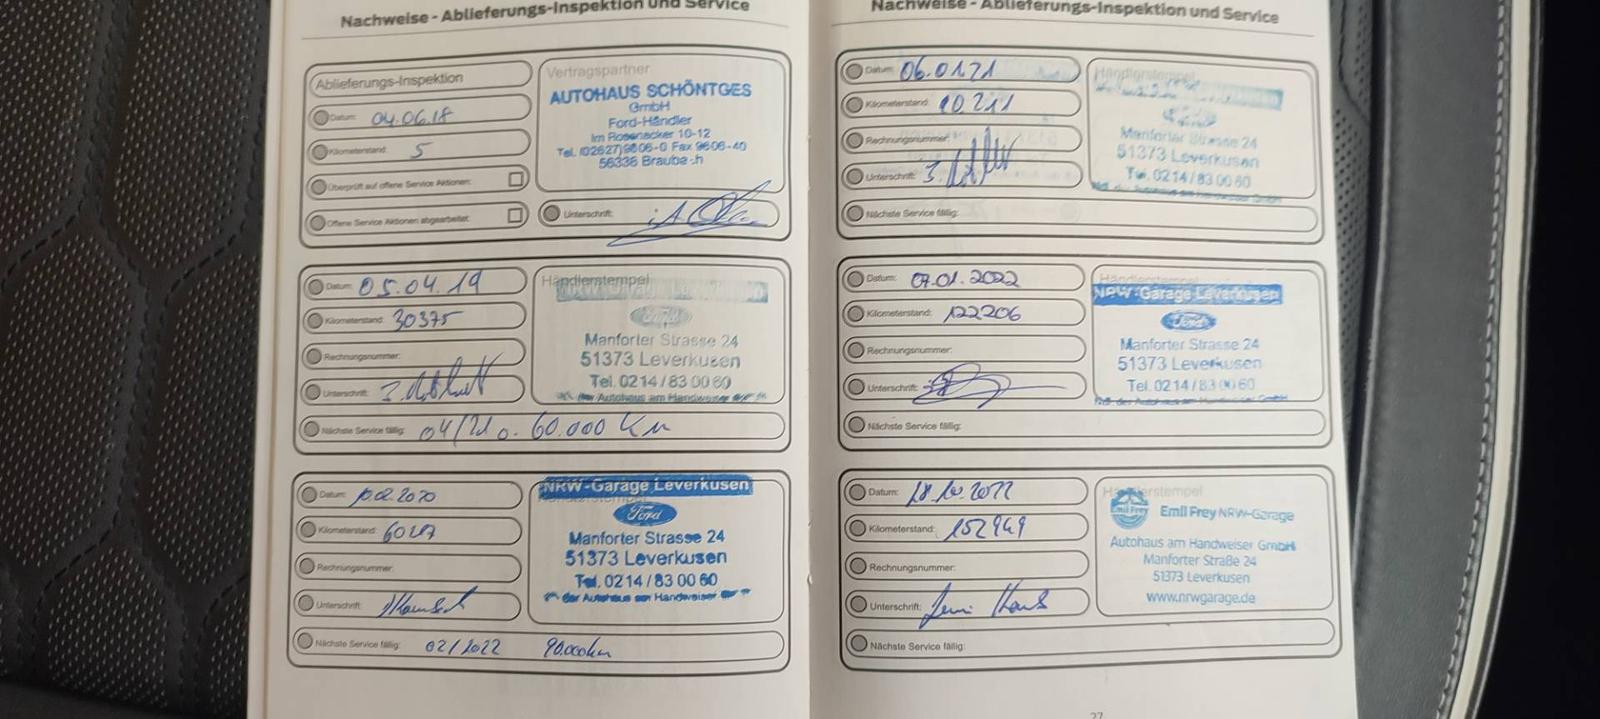 Nachweise - Ablieferungs-Inspektion und Service
Ablieferungs-Inspektion
Datum: 04.06.18
Kilometerstand: 5
Überprüft auf offene Service Aktionen:
Offene Service Aktionen abgearbeitet:
Vertragspartner
AUTOHAUS SCHÖNTGES
GmbH
Ford-Händler
Im Rosenacker 10-12
Tel. (02627) 9606-0 Fax 9606-40
56338 Brauba.h
Unterschrift:
Datum: 05.04.19
Kilometerstand: 30375
Rechnungsnummer:
Unterschrift:
Händlerstempel
NRW-Garage Leverkusen
Ford
Manforter Strasse 24
51373 Leverkusen
Tel. 0214/83 00 60
der Autohaus am Handweiser
Nächste Service fällig: 04/21 o. 60.000 Km
Datum: 10.02.2020
Kilometerstand:
Rechnungsnummer:
Unterschrift:
NRW-Garage Leverkusen
Ford
Manforter Strasse 24
51373 Leverkusen
Tel. 0214/83 00 60
der Autohaus am Handweiser
Nächste Service fällig: 02/2022 90.000km
Nachweise - Ablieferungs-Inspektion und Service
Datum: 06.01.21
Kilometerstand:
Rechnungsnummer:
Unterschrift:
Händlerstempel
Manforter Strasse 24
51373 Leverkusen
Tel. 0214/83 00 60
Nächste Service fällig:
Datum: 07.01.2022
Kilometerstand: 122206
Rechnungsnummer:
Unterschrift:
Händlerstempel
NRW-Garage Leverkusen
Ford
Manforter Strasse 24
51373 Leverkusen
Tel. 0214/83 00 60
Nächste Service fällig:
Datum: 18.10.2022
Kilometerstand: 152949
Rechnungsnummer:
Unterschrift:
Händlerstempel
Emil Frey
Emil Frey NRW-Garage
Autohaus am Handweiser GmbH
Manforter Straße 24
51373 Leverkusen
www.nrwgarage.de
Nächste Service fällig:
27